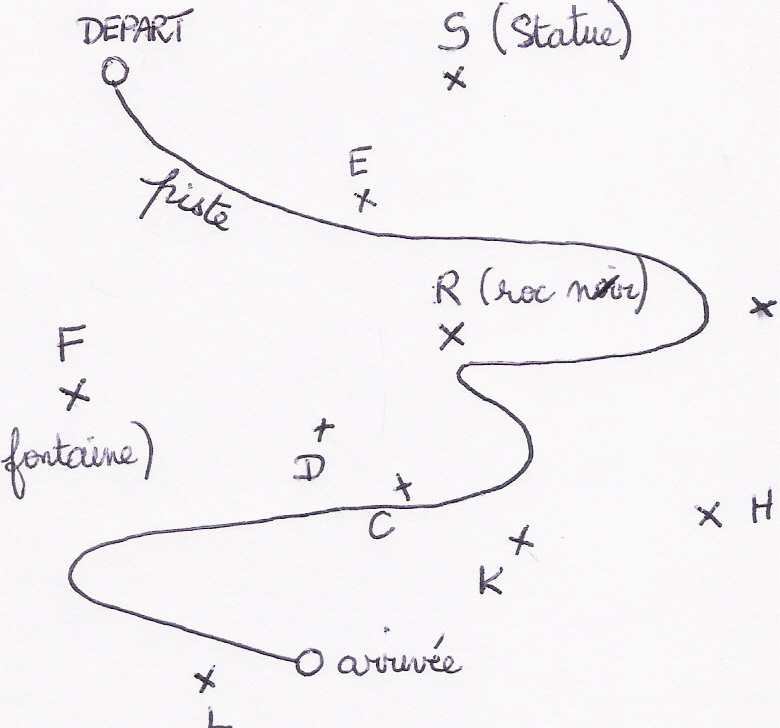 DEPART
S (Statue)
E
piste
R (roc noir)
F
fontaine)
D
C
H
K
arrivée